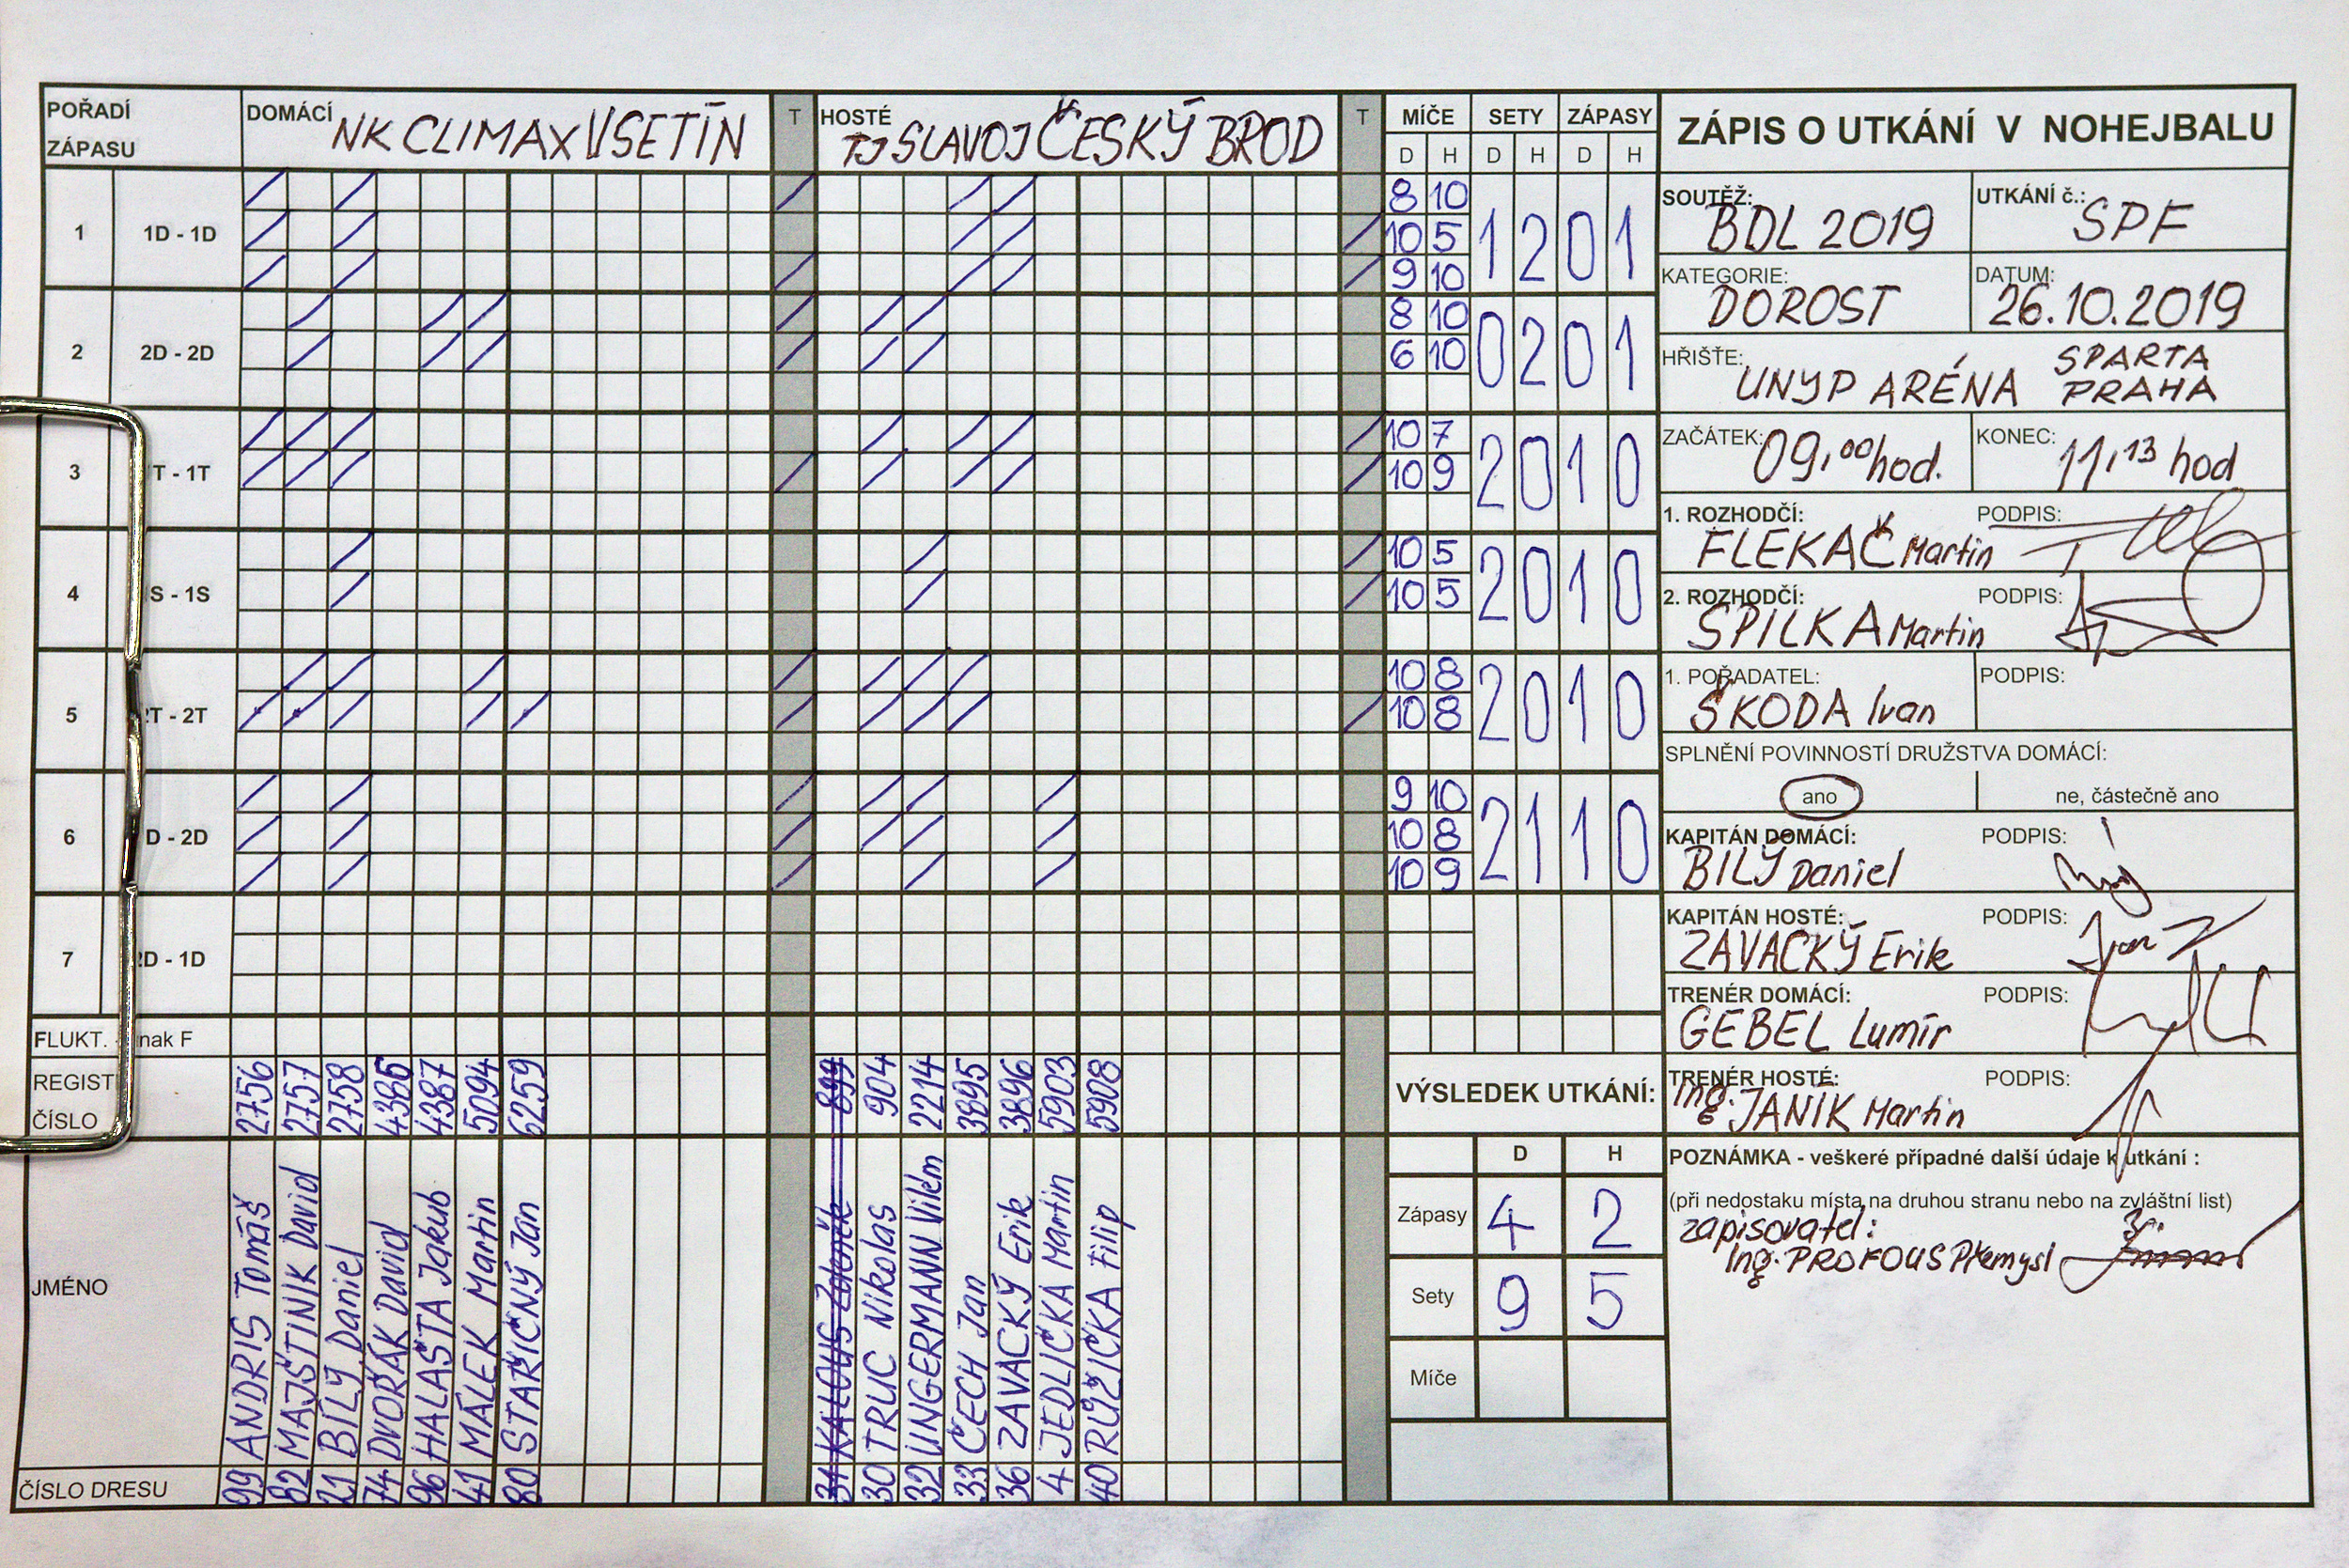 POŘADÍ ZÁPASU
DOMÁCÍ NK CLIMAX VSETÍN
T
HOSTÉ TJ SLAVOJ ČESKÝ BROD
T
MÍČE SETY ZÁPASY
D H D H D H
1 1D - 1D
8 10
10 5
9 10
1 2 0 1
2 2D - 2D
8 10
6 10
0 2 0 1
3 T - 1T
10 7
10 9
2 0 1 0
4 S - 1S
10 5
10 5
2 0 1 0
5 2T - 2T
10 8
10 8
2 0 1 0
6 D - 2D
9 10
10 8
10 9
2 1 1 0
7 2D - 1D
FLUKT. nak F
REGIST
ČÍSLO
2756 2757 2758 4386 4387 5094 6259
899 904 2214 3895 3896 5903 5908
JMÉNO
ANDRIS Tomáš
MAJŠTINÍK David
BÍLÝ Daniel
DVOŘÁK David
HALAŠTA Jakub
MÁLEK Martin
STAŘIČNÝ Jan
KALOUS Zdeněk
TRUC Nikolas
UNGERMANN Vilém
ČECH Jan
ZAVACKÝ Erik
JEDLIČKA Martin
RŮŽIČKA Filip
ČÍSLO DRESU
99 82 21 74 96 41 80
31 30 32 33 36 4 40
VÝSLEDEK UTKÁNÍ:
D H
Zápasy 4 2
Sety 9 5
Míče
ZÁPIS O UTKÁNÍ V NOHEJBALU
SOUTĚŽ: BDL 2019
UTKÁNÍ č.: SPF
KATEGORIE: DOROST
DATUM: 26.10.2019
HŘIŠTE: UNYP ARÉNA SPARTA PRAHA
ZAČÁTEK: 09,00 hod.
KONEC: 11,13 hod
1. ROZHODČÍ: FLEKAČ Martin
PODPIS:
2. ROZHODČÍ: SPILKA Martin
PODPIS:
1. POŘADATEL: ŠKODA Ivan
PODPIS:
SPLNĚNÍ POVINNOSTÍ DRUŽSTVA DOMÁCÍ:
ano
ne, částečně ano
KAPITÁN DOMÁCÍ: BILÝ Daniel
PODPIS:
KAPITÁN HOSTÉ: ZAVACKÝ Erik
PODPIS:
TRENÉR DOMÁCÍ: GEBEL Lumír
PODPIS:
TRENÉR HOSTÉ: Ing. JANÍK Martin
PODPIS:
POZNÁMKA - veškeré případné další údaje k utkání :
(při nedostaku místa na druhou stranu nebo na zvláštní list)
zapisovatel:
Ing. PROFOUS Přemysl